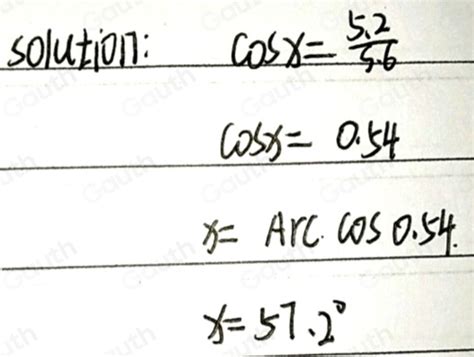 solution: cosx= 5.2/5.6
cosx= 0.54
x= Arc. cos 0.54.
x=57.2°